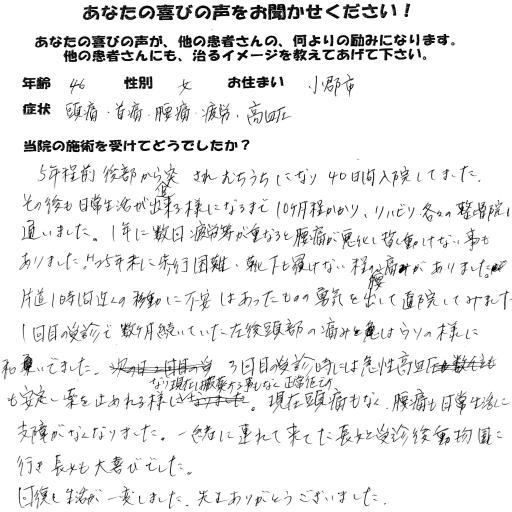 あなたの喜びの声をお聞かせください！
あなたの喜びの声が、他の患者さんの、何よりの励みになります。
他の患者さんにも、治るイメージを教えてあげて下さい。
年齢 46 性別 女 お住まい 小郡市
症状 頭痛・首痛・腰痛・疲労・高血圧
当院の施術を受けてどうでしたか？
5年程前後部から追突されむちうちになり40日間入院してました。
その後も日常生活が出来る様になるまで10ヶ月程かかり、リハビリ各々の整骨院に
通いました。1年に数日疲労等が重なると腰痛が悪化し皆動けない事も
ありました。　5年末に歩行困難、靴下も履けない程の腰痛がありました。
片道1時間近くの移動に不安はあったものの勇気を出して直院してみました
1回目の受診で数ヶ月続いていた左後頭部の痛みはウソの様に
和らいでました。3回目の受診時には急性高血圧
なり現在は服薬する事もなく正常値での
も安定し薬を止めれる様に。現在頭痛もなく、腰痛も日常生活に
支障がなくなりました。一緒に連れて来てた長女と受診後動物園に
行き長女も大喜びでした。
回復し生活が一変しました。先生ありがとうございました。